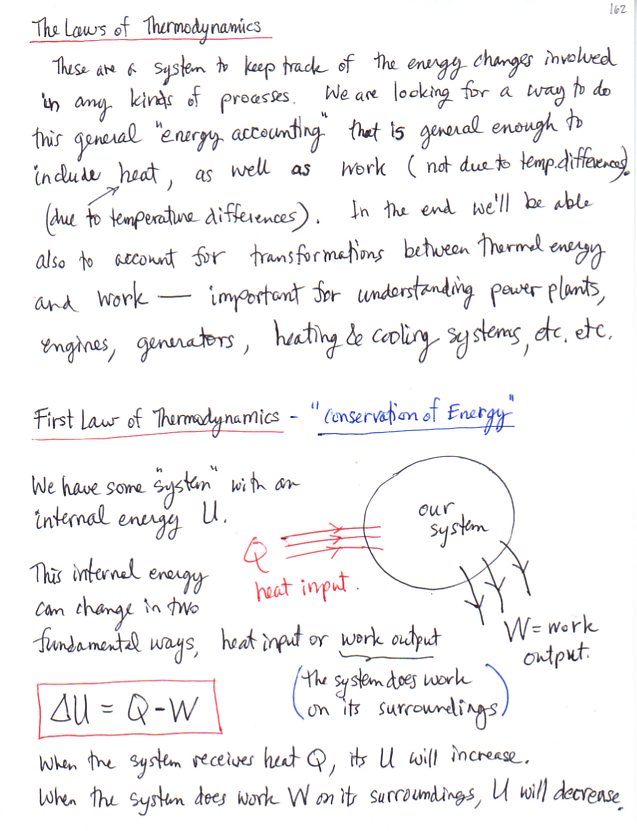 162
The Laws of Thermodynamics
These are a system to keep track of the energy changes involved
in any kinds of processes. We are looking for a way to do
this general "energy accounting" that is general enough to
include heat, as well as work (not due to temp. differences).
(due to temperature differences). In the end we'll be able
also to account for transformations between thermal energy
and work — important for understanding power plants,
engines, generators, heating & cooling systems, etc. etc.
First Law of Thermodynamics - "Conservation of Energy"
We have some "system" with an
internal energy U.
our
system
Q
heat input.
This internal energy
can change in two
fundamental ways, heat input or work output
W = work
output.
(the system does work
on its surroundings)
ΔU = Q - W
When the system receives heat Q, its U will increase.
When the system does work W on its surroundings, U will decrease.